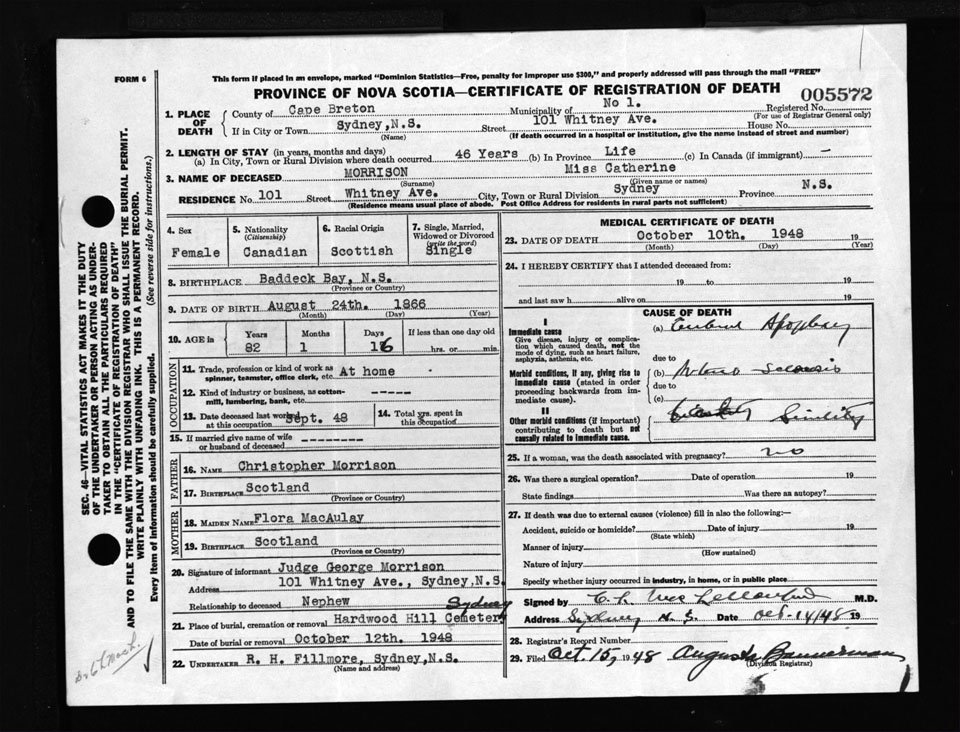 This form if placed in an envelope, marked "Dominion Statistics—Free, penalty for improper use $300," and properly addressed will pass through the mail "FREE"
FORM 6
PROVINCE OF NOVA SCOTIA—CERTIFICATE OF REGISTRATION OF DEATH
005572
1. PLACE OF DEATH
County of Cape Breton Municipality of No 1. Registered No.
(For use of Registrar General only)
If in City or Town Sydney,N.S. Street 101 Whitney Ave. House No.
(Name) (If death occurred in a hospital or institution, give the name instead of street and number)
2. LENGTH OF STAY (in years, months and days)
(a) In City, Town or Rural Division where death occurred 46 Years (b) In Province Life (c) In Canada (if immigrant) —
3. NAME OF DECEASED MORRISON Miss Catherine
(Surname) (Given name or names)
RESIDENCE No 101 Street Whitney Ave. City, Town or Rural Division Sydney Province N.S.
(Residence means usual place of abode. Post Office Address for residents in rural parts not sufficient)
4. Sex
Female
5. Nationality
(Citizenship)
Canadian
6. Racial Origin
Scottish
7. Single, Married, Widowed or Divorced
(write the word)
Single
8. BIRTHPLACE Baddeck Bay, N.S.
(Province or Country)
9. DATE OF BIRTH August 24th. 1866
(Month) (Day) (Year)
10. AGE in
Years Months Days If less than one day old
82 1 16 hrs. or min.
OCCUPATION
11. Trade, profession or kind of work as spinner, teamster, office clerk, etc. At home
12. Kind of industry or business, as cotton-mill, lumbering, bank, etc. -----
13. Date deceased last worked at this occupation Sept. 48
14. Total yrs. spent in this occupation
15. If married give name of wife or husband of deceased --------
FATHER
16. NAME Christopher Morrison
17. BIRTHPLACE Scotland
(Province or Country)
MOTHER
18. MAIDEN NAME Flora MacAulay
19. BIRTHPLACE Scotland
(Province or Country)
20. Signature of informant Judge George Morrison
Address 101 Whitney Ave., Sydney,N.S.
Relationship to deceased Nephew
Sydney
21. Place of burial, cremation or removal Hardwood Hill Cemetery
Date of burial or removal October 12th. 1948
22. UNDERTAKER R. H. Fillmore, Sydney,N.S.
(Name and address)
MEDICAL CERTIFICATE OF DEATH
23. DATE OF DEATH October 10th. 1948 19
(Month) (Day) (Year)
24. I HEREBY CERTIFY that I attended deceased from:
19 to 19
and last saw h alive on 19
CAUSE OF DEATH
I
Immediate cause
Give disease, injury or complication which caused death, not the mode of dying, such as heart failure, asphyxia, asthenia, etc.
(a) Apoplexy
due to
Morbid conditions, if any, giving rise to immediate cause (stated in order proceeding backwards from immediate cause).
(b)
due to
(c)
II
Other morbid conditions (if important) contributing to death but not causally related to immediate cause.
Senility
25. If a woman, was the death associated with pregnancy? no
26. Was there a surgical operation? Date of operation 19
State findings Was there an autopsy?
27. If death was due to external causes (violence) fill in also the following:—
Accident, suicide or homicide? Date of injury 19
(State which)
Manner of injury
(How sustained)
Nature of injury
Specify whether injury occurred in industry, in home, or in public place
Signed by M.D.
Address Sydney N. S. Date Oct. 14/48 19
28. Registrar's Record Number
29. Filed Oct. 15, 1948 Augusta Bannerman
(Division Registrar)
SEC. 46—VITAL STATISTICS ACT MAKES IT THE DUTY
OF THE UNDERTAKER OR PERSON ACTING AS UNDER-
TAKER TO OBTAIN ALL THE PARTICULARS REQUIRED
IN THE "CERTIFICATE OF REGISTRATION OF DEATH"
AND TO FILE THE SAME WITH THE DIVISION REGISTRAR WHO SHALL ISSUE THE BURIAL PERMIT.
WRITE PLAINLY WITH UNFADING INK. THIS IS A PERMANENT RECORD.
Every item of information should be carefully supplied. (See reverse side for instructions.)